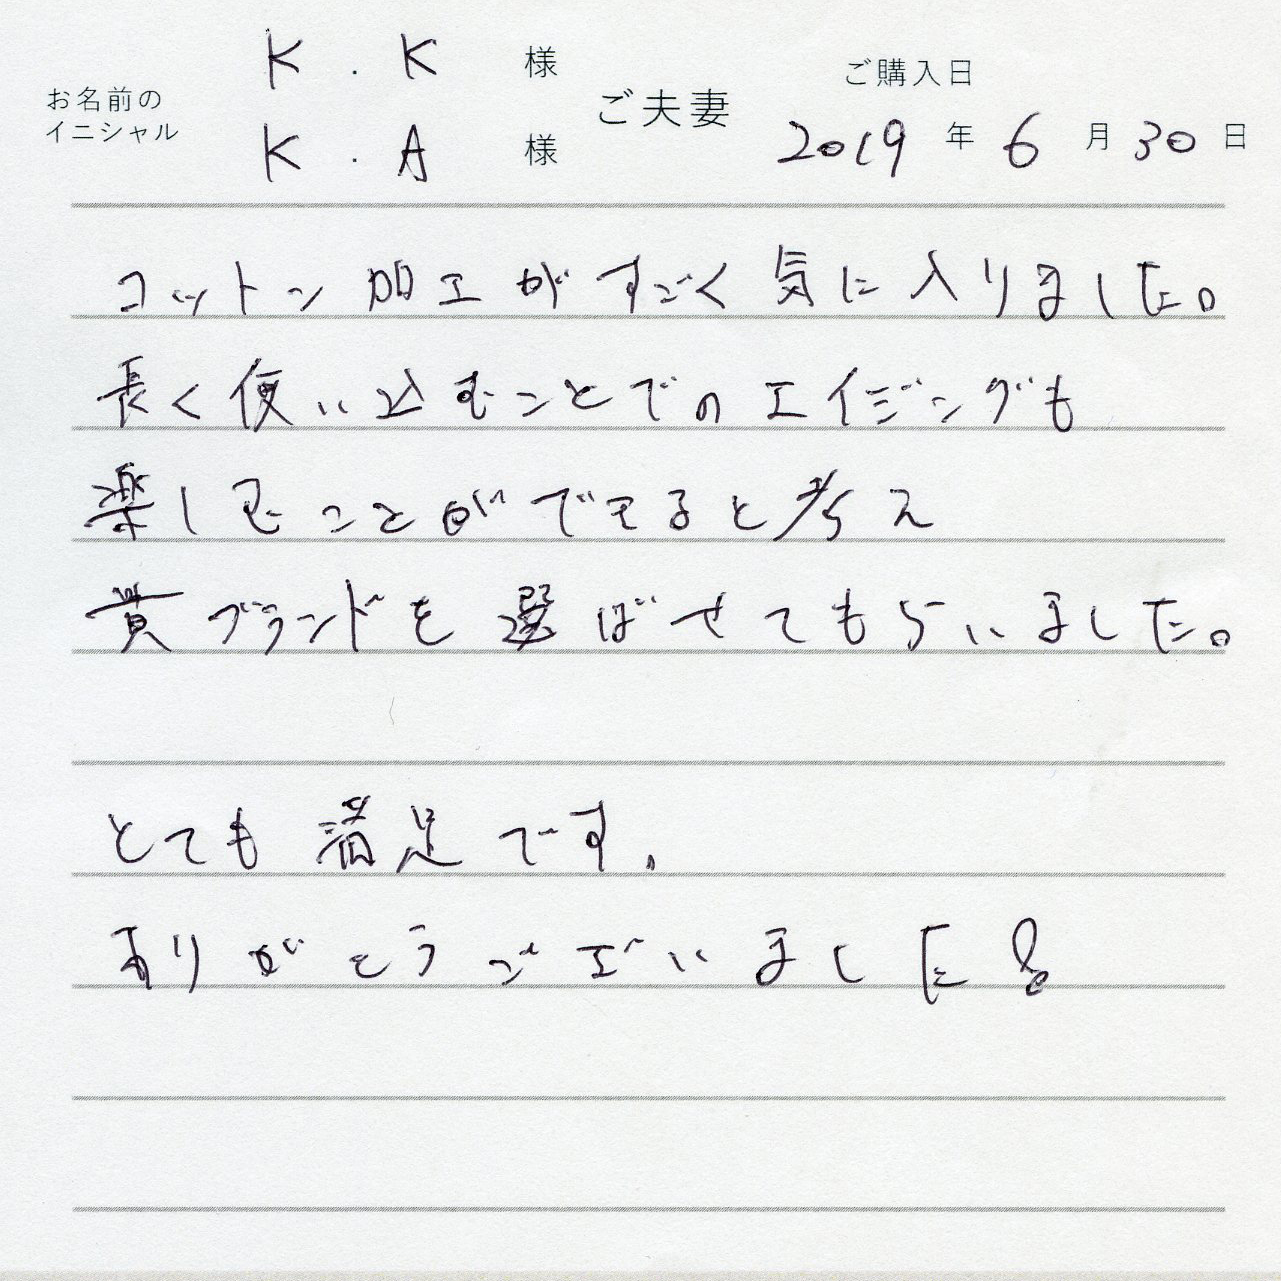 K . K 様
お名前の
イニシャル
K . A 様
ご夫妻
ご購入日
2019 年 6 月 30 日
コットン加工がすごく気に入りました。
長く使い込むことでのエイジングも
楽しむことができると考え
貴ブランドを選ばせてもらいました。
とても満足です。
ありがとうございました!